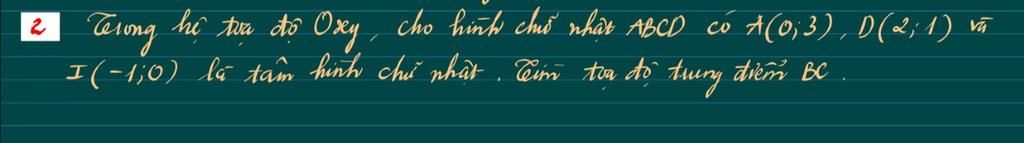 2 Trong hệ tọa độ Oxy, cho hình chữ nhật ABCD có A(0;3), D(2;1) và
I(-1;0) là tâm hình chữ nhật. Tìm tọa độ trung điểm BC.